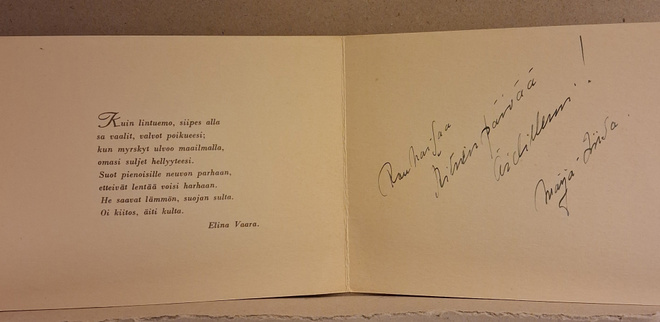 Kuin lintuemo, siipes alla
sa vaalit, valvot poikueesi;
kun myrskyt ulvoo maailmalla,
omasi suljet hellyyteesi.
Suot pienoisille neuvon parhaan,
etteivät lentää voisi harhaan.
He saavat lämmön, suojan sulta.
Oi kiitos, äiti kulta.
Elina Vaara.
Rauhaisaa
Äitienpäivää
Äidilleni!
Marja-Liisa.